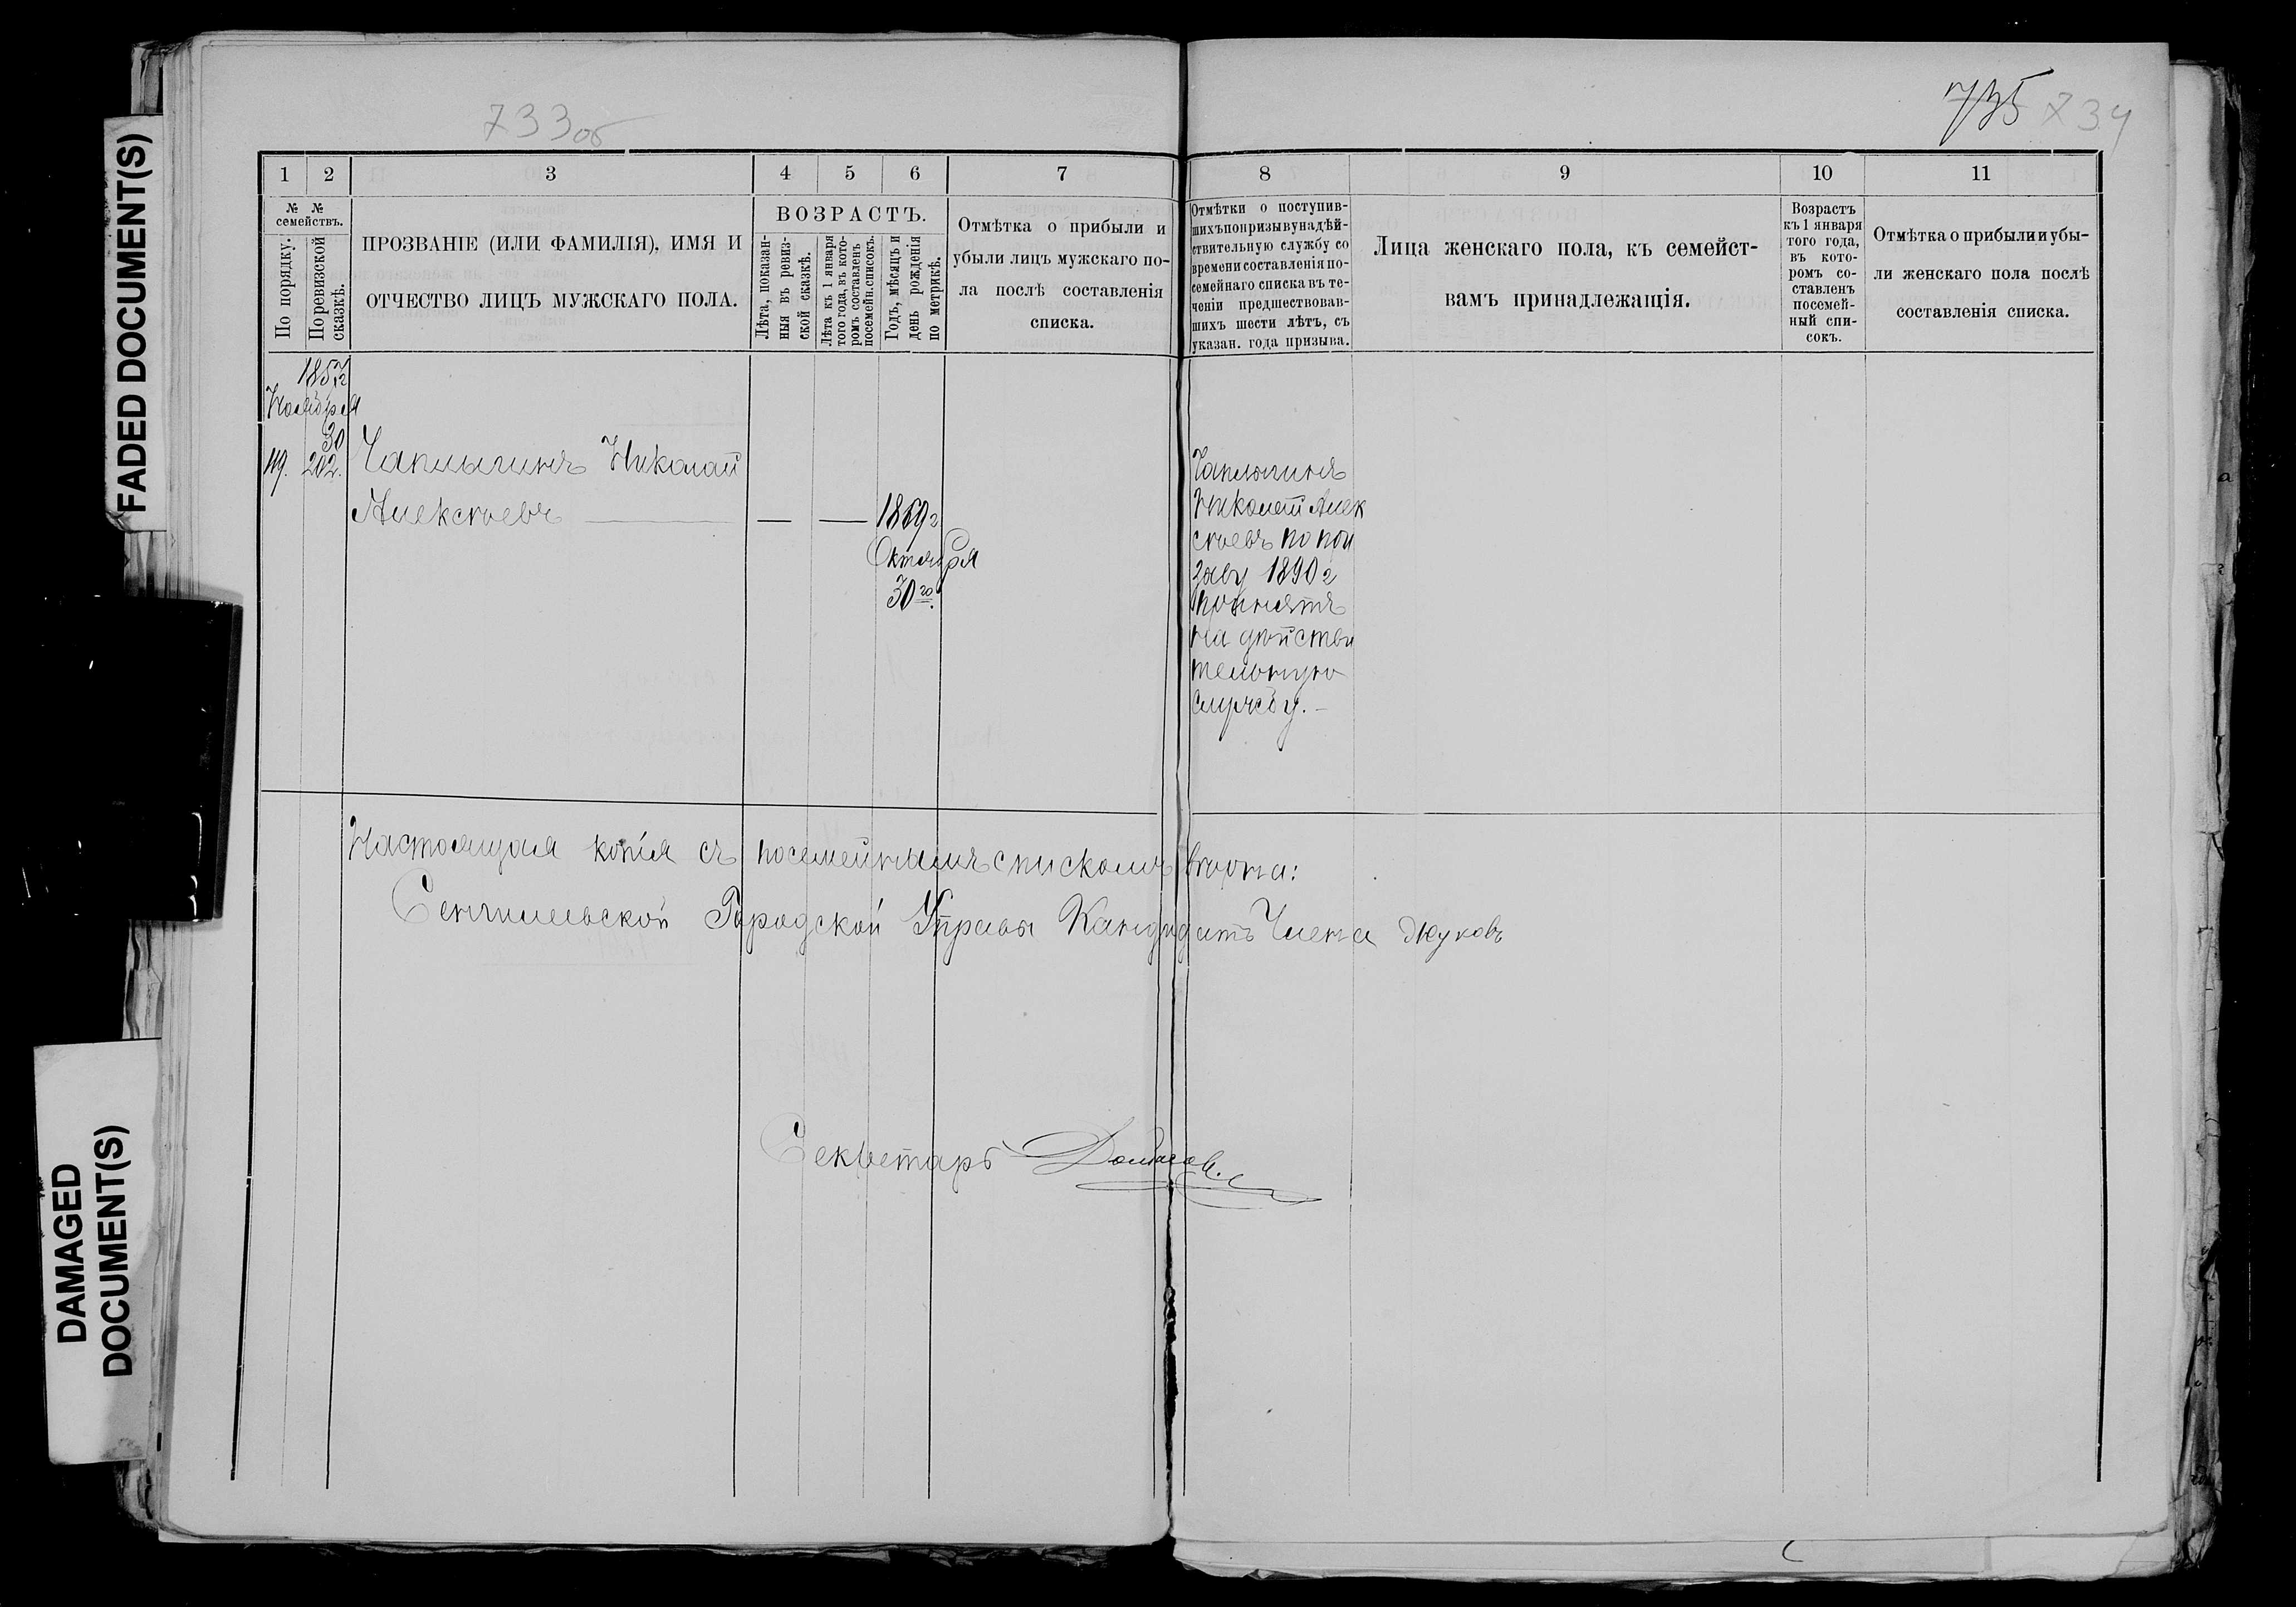 FADED DOCUMENT(S)
DAMAGED
DOCUMENT(S)
733об
735 734
1
2
3
4
5
6
7
8
9
10
11
№ №
семействъ.
По порядку.
По ревизской
сказкѣ.
ПРОЗВАНІЕ (ИЛИ ФАМИЛІЯ), ИМЯ И
ОТЧЕСТВО ЛИЦЪ МУЖСКАГО ПОЛА.
ВОЗРАСТЪ.
Лѣта, показан-
ныя въ ревиз-
ской сказкѣ.
Лѣта къ 1 января
того года, въ кото-
ромъ составленъ
посемейн. списокъ.
Годъ, мѣсяцъ и
день рожденія
по метрикѣ.
Отмѣтка о прибыли и
убыли лицъ мужскаго по-
ла послѣ составленія
списка.
Отмѣтки о поступив-
шихъ по призыву на дѣй-
ствительную службу со
времени составленія по-
семейнаго списка въ те-
ченіи предшествовав-
шихъ шести лѣтъ, съ
указан. года призыва.
Лица женскаго пола, къ семейст-
вамъ принадлежащія.
Возрастъ
къ 1 января
того года,
въ кото-
ромъ со-
ставленъ
посемей-
ный спи-
сокъ.
Отмѣтка о прибыли и убы-
ли женскаго пола послѣ
составленія списка.
1857г
Ноября
30
119. 202. Чаплыгинъ Николай
Алексѣевъ — — — 1869г
Октября
30го.
Чаплыгинъ
Николай Алек
сѣевъ по при
зыву 1890г
принятъ
на дѣйстви
тельную
службу. –
Настоящая копія съ посемейнымъ спискомъ вѣрна:
Сенгилеевской Городской Управы Кандидатъ Члена Жуковъ
Секретарь